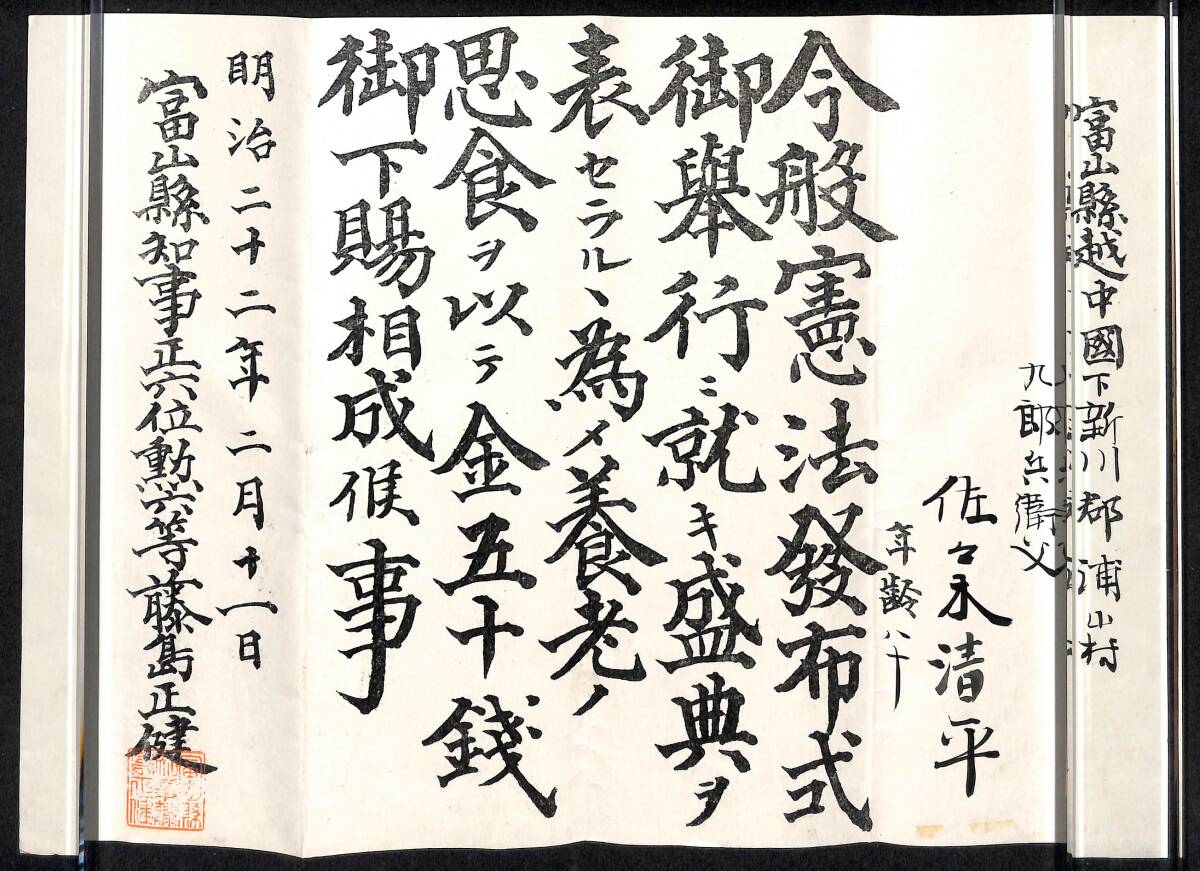 富山縣越中國下新川郡浦山村
九郎兵衛父
佐々木清平
年齡八十
今般憲法發布式
御舉行ニ就キ盛典ヲ
表セラルヽ為メ養老ノ
思食ヲ以テ金五十錢
御下賜相成候事
明治二十二年二月十一日
富山縣知事正六位勳六等藤島正健